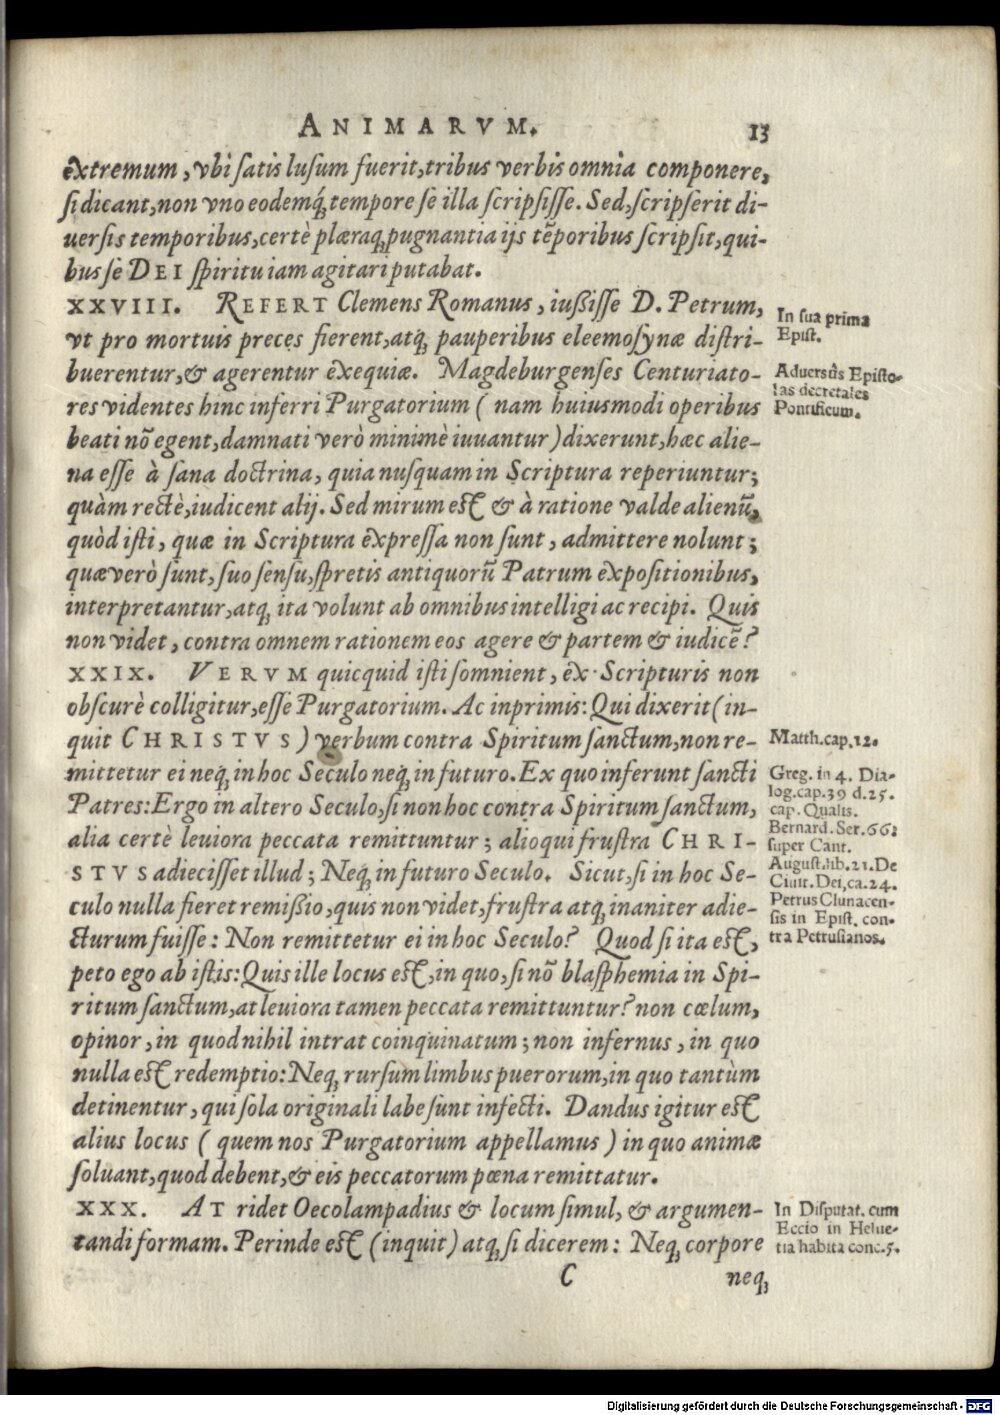 ANIMARVM. 13
extremum, vbi satis lusum fuerit, tribus verbis omnia componere,
si dicant, non vno eodemq́; tempore se illa scripsisse. Sed, scripserit di-
uersis temporibus, certè plæraq; pugnantia ijs tẽporibus scripsit, qui-
bus se DEI spiritu iam agitari putabat.
XXVIII. REFERT Clemens Romanus, iußisse D. Petrum,
vt pro mortuis preces fierent, atq; pauperibus eleemosynæ distri-
buerentur, & agerentur exequiæ. Magdeburgenses Centuriato-
res videntes hinc inferri Purgatorium ( nam huiusmodi operibus
beati nõ egent, damnati verò minimè iuuantur ) dixerunt, hæc alie-
na esse à sana doctrina, quia nusquam in Scriptura reperiuntur;
quàm rectè, iudicent alij. Sed mirum est & à ratione valde alienũ,
quòd isti, quæ in Scriptura expressa non sunt, admittere nolunt;
quæ verò sunt, suo sensu, spretis antiquorũ Patrum expositionibus,
interpretantur, atq; ita volunt ab omnibus intelligi ac recipi. Quis
non videt, contra omnem rationem eos agere & partem & iudicẽ?
XXIX. VERVM quicquid isti somnient, ex Scripturis non
obscurè colligitur, esse Purgatorium. Ac inprimis: Qui dixerit (in-
quit CHRISTVS) verbum contra Spiritum sanctum, non re-
mittetur ei neq; in hoc Seculo neq; in futuro. Ex quo inferunt sancti
Patres: Ergo in altero Seculo, si non hoc contra Spiritum sanctum,
alia certè leuiora peccata remittuntur; alioqui frustra CHRI-
STVS adiecisset illud; Neq; in futuro Seculo. Sicut, si in hoc Se-
culo nulla fieret remißio, quis non videt, frustra atq; inaniter adie-
cturum fuisse: Non remittetur ei in hoc Seculo? Quod si ita est,
peto ego ab istis: Quis ille locus est, in quo, si nõ blasphemia in Spi-
ritum sanctum, at leuiora tamen peccata remittuntur? non cœlum,
opinor, in quod nihil intrat coinquinatum; non infernus, in quo
nulla est redemptio: Neq; rursum limbus puerorum, in quo tantùm
detinentur, qui sola originali labe sunt infecti. Dandus igitur est
alius locus ( quem nos Purgatorium appellamus ) in quo animæ
soluant, quod debent, & eis peccatorum pœna remittatur.
XXX. AT ridet Oecolampadius & locum simul, & argumen-
tandi formam. Perinde est (inquit) atq; si dicerem: Neq; corpore
C neq;
In sua prima
Epist.
Aduersus Episto-
las decretales
Pontificum.
Matth. cap. 12.
Greg. in 4. Dia-
log. cap. 39 d. 25.
cap. Qualis.
Bernard. Ser. 66.
super Cant.
August. lib. 21. De
Ciuit. Dei, ca. 24.
Petrus Clunacen-
sis in Epist. con-
tra Petrusianos.
In Disputat. cum
Eccio in Helue-
tia habita conc. 5.
Digitalisierung gefördert durch die Deutsche Forschungsgemeinschaft - DFG